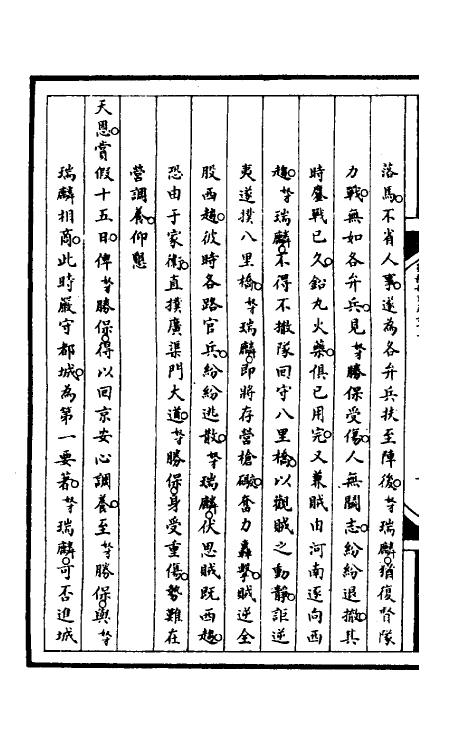 落馬不省人事遂為各弁兵扶至陣後等瑞麟猶復督隊
力戰無如各弁兵見等勝保受傷人無鬭志紛紛退撤其
時鏖戰已久鉛丸火藥俱已用完又兼賊由河南逐向西
趨等瑞麟不得不撤隊回守八里橋以觀賊之動靜詎逆
夷遂撲八里橋等瑞麟即將存營槍礮奮力轟擊賊逆全
股西趨彼時各路官兵紛紛逃散等瑞麟伏思賊既西趨
恐由于家衛直撲廣渠門大道等勝保身受重傷勢難在
營調養仰懇
天恩賞假十五日俾等勝保得以回京安心調養至等勝保與等
瑞麟相商此時嚴守都城為第一要著等瑞麟可否進城